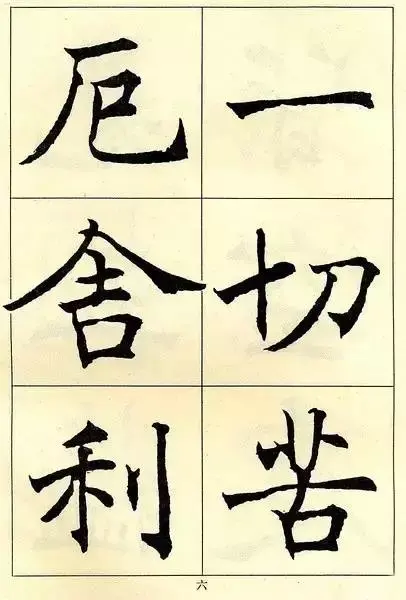 一切苦
厄舍利
六